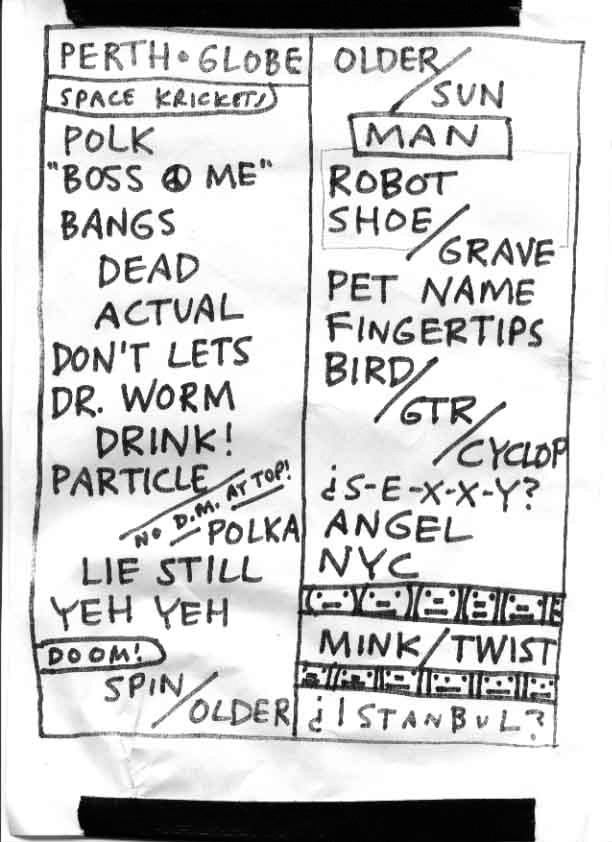 PERTH • GLOBE
SPACE KRICKETS
POLK
"BOSS ☮ ME"
BANGS
DEAD
ACTUAL
DON'T LETS
DR. WORM
DRINK!
PARTICLE
NO D.M. AT TOP!
POLKA
LIE STILL
YEH YEH
DOOM!
SPIN/
OLDER
OLDER/
SUN
MAN
ROBOT
SHOE/
GRAVE
PET NAME
FINGERTIPS
BIRD/
GTR/
CYCLOP
¿S-E-X-X-Y?
ANGEL
NYC
MINK/TWIST
¿ISTANBUL?